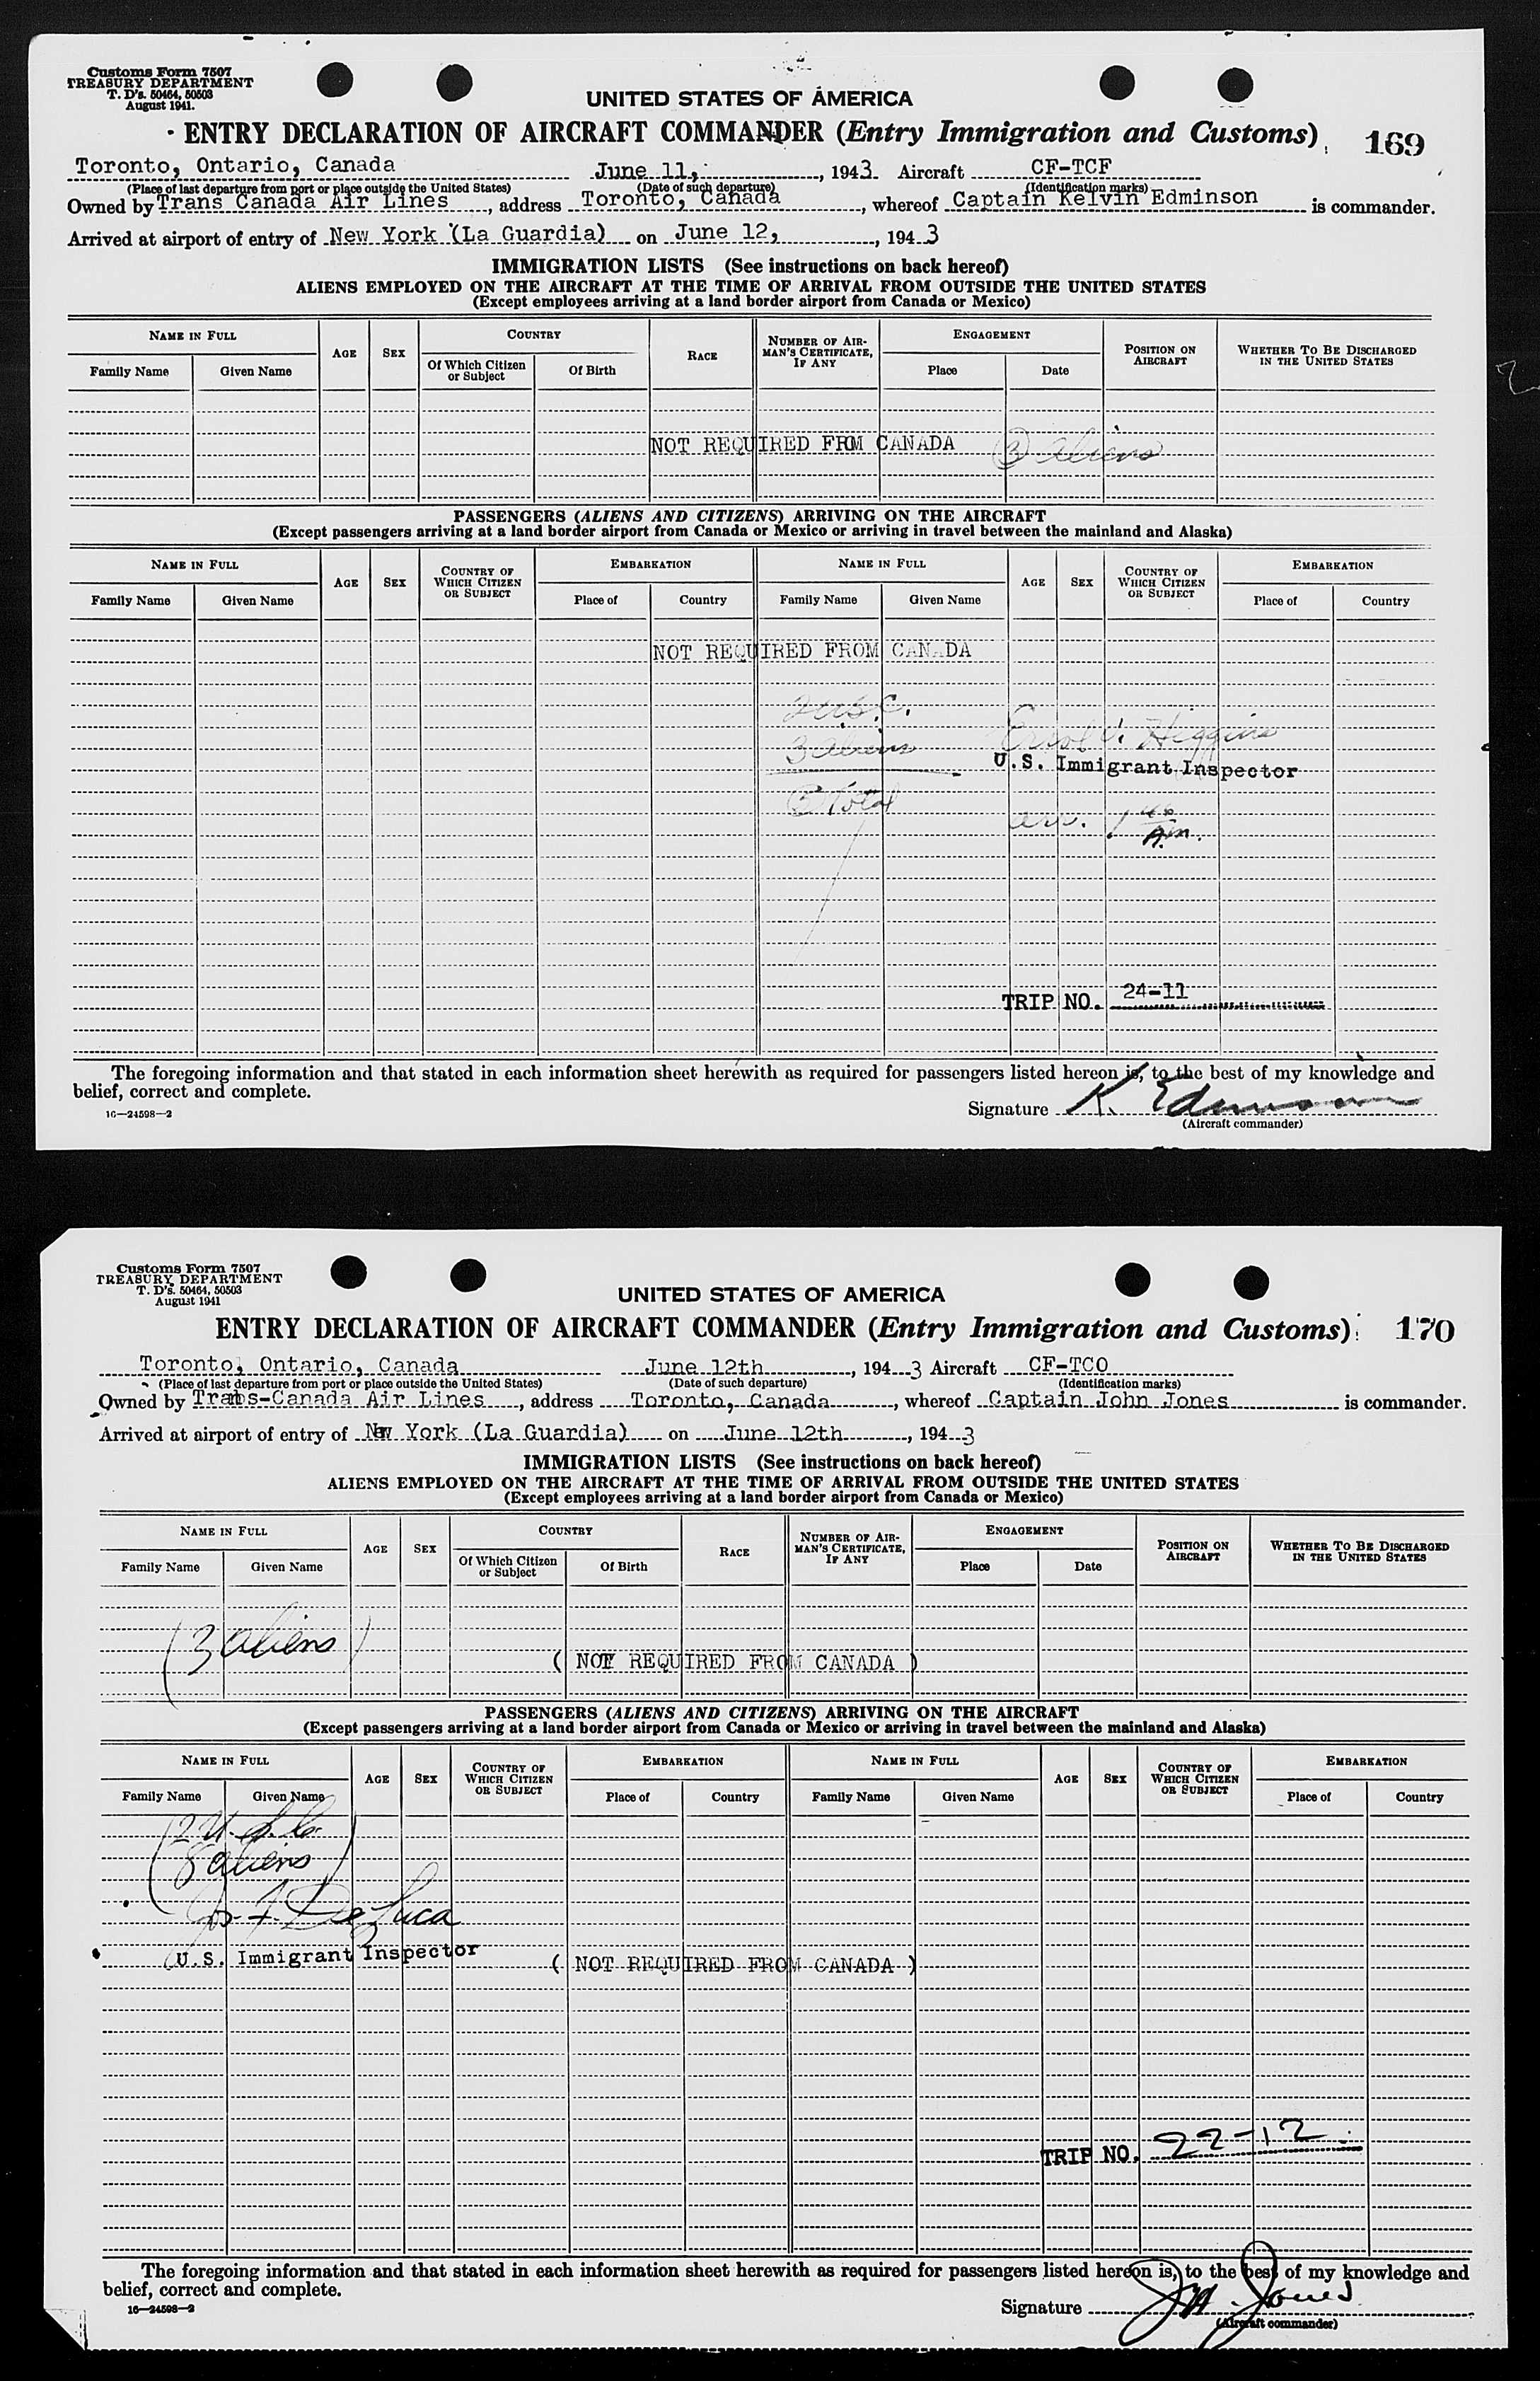 Customs Form 7507
TREASURY DEPARTMENT
T. D's. 50464, 50503
August 1941.
UNITED STATES OF AMERICA
ENTRY DECLARATION OF AIRCRAFT COMMANDER (Entry Immigration and Customs) 169
Toronto, Ontario, Canada June 11, 1943 Aircraft CF-TCF
(Place of last departure from port or place outside the United States) (Date of such departure) (Identification marks)
Owned by Trans Canada Air Lines, address Toronto, Canada, whereof Captain Kelvin Edminson is commander.
Arrived at airport of entry of New York (La Guardia) on June 12, 1943
IMMIGRATION LISTS (See instructions on back hereof)
ALIENS EMPLOYED ON THE AIRCRAFT AT THE TIME OF ARRIVAL FROM OUTSIDE THE UNITED STATES
(Except employees arriving at a land border airport from Canada or Mexico)
NAME IN FULL AGE SEX COUNTRY RACE NUMBER OF AIRMAN'S CERTIFICATE, IF ANY ENGAGEMENT POSITION ON AIRCRAFT WHETHER TO BE DISCHARGED IN THE UNITED STATES
Family Name Given Name Of Which Citizen or Subject Of Birth Place Date
NOT REQUIRED FROM CANADA (3) aliens
PASSENGERS (ALIENS AND CITIZENS) ARRIVING ON THE AIRCRAFT
(Except passengers arriving at a land border airport from Canada or Mexico or arriving in travel between the mainland and Alaska)
NAME IN FULL AGE SEX COUNTRY OF WHICH CITIZEN OR SUBJECT EMBARKATION NAME IN FULL AGE SEX COUNTRY OF WHICH CITIZEN OR SUBJECT EMBARKATION
Family Name Given Name Place of Country Family Name Given Name Place of Country
NOT REQUIRED FROM CANADA
2 USC.
3 aliens Higgins
U.S. Immigrant Inspector
Total
arr. A.m.
TRIP NO. 24-11
The foregoing information and that stated in each information sheet herewith as required for passengers listed hereon is, to the best of my knowledge and
belief, correct and complete.
16—24598—2
Signature K. Edminson
(Aircraft commander)
Customs Form 7507
TREASURY DEPARTMENT
T. D's. 50464, 50503
August 1941
UNITED STATES OF AMERICA
ENTRY DECLARATION OF AIRCRAFT COMMANDER (Entry Immigration and Customs) 170
Toronto, Ontario, Canada June 12th, 1943 Aircraft CF-TCO
(Place of last departure from port or place outside the United States) (Date of such departure) (Identification marks)
Owned by Trans-Canada Air Lines, address Toronto, Canada, whereof Captain John Jones is commander.
Arrived at airport of entry of New York (La Guardia) on June 12th, 1943
IMMIGRATION LISTS (See instructions on back hereof)
ALIENS EMPLOYED ON THE AIRCRAFT AT THE TIME OF ARRIVAL FROM OUTSIDE THE UNITED STATES
(Except employees arriving at a land border airport from Canada or Mexico)
NAME IN FULL AGE SEX COUNTRY RACE NUMBER OF AIRMAN'S CERTIFICATE, IF ANY ENGAGEMENT POSITION ON AIRCRAFT WHETHER TO BE DISCHARGED IN THE UNITED STATES
Family Name Given Name Of Which Citizen or Subject Of Birth Place Date
(3 aliens)
( NOT REQUIRED FROM CANADA )
PASSENGERS (ALIENS AND CITIZENS) ARRIVING ON THE AIRCRAFT
(Except passengers arriving at a land border airport from Canada or Mexico or arriving in travel between the mainland and Alaska)
NAME IN FULL AGE SEX COUNTRY OF WHICH CITIZEN OR SUBJECT EMBARKATION NAME IN FULL AGE SEX COUNTRY OF WHICH CITIZEN OR SUBJECT EMBARKATION
Family Name Given Name Place of Country Family Name Given Name Place of Country
(2 U.S.C.
8 aliens)
Jos. F. DeLuca
U.S. Immigrant Inspector
( NOT REQUIRED FROM CANADA )
TRIP NO. 22-12
The foregoing information and that stated in each information sheet herewith as required for passengers listed hereon is, to the best of my knowledge and
belief, correct and complete.
16—24598—2
Signature Jones
(Aircraft commander)